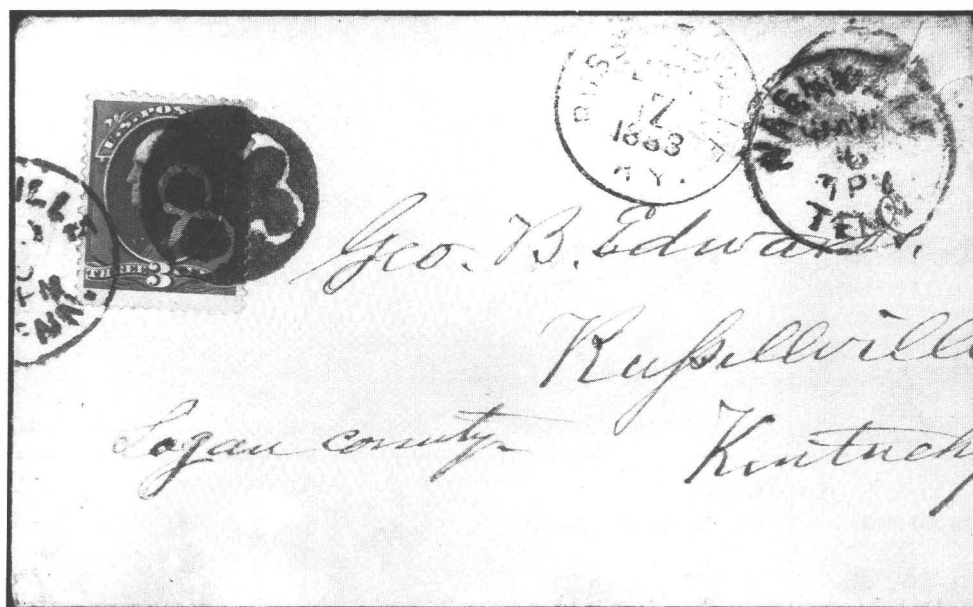 U.S. POS
THREE 3
RUSSELLVILLE
JAN
7
1883
KY.
NASHVILLE
JAN
6
7 PM
TENN
Geo. B. Edwards.
Russellville
Logan county
Kentucky